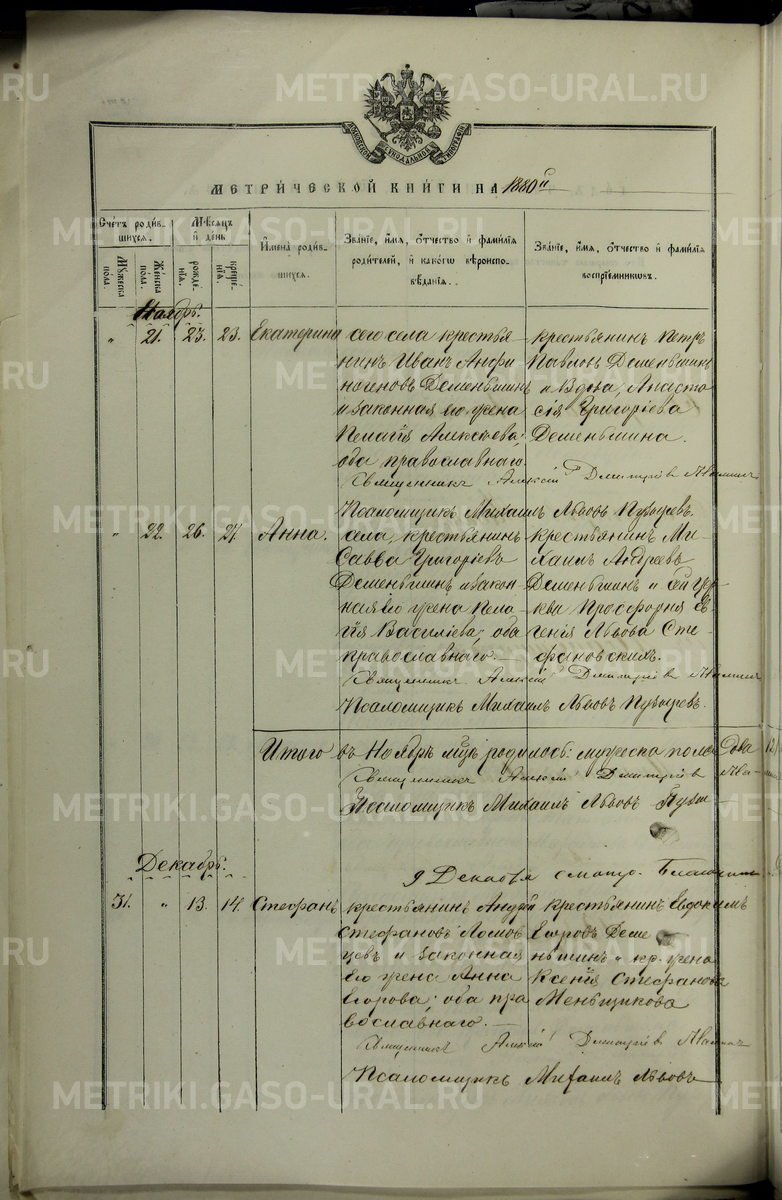 МЕТРИ́ЧЕСКОЙ КНИ́ГИ НА 1880 й
Сче́тъ роди́вшихся.
Мѣ́сяцъ и де́нь
Му́жеска пола.
Же́нска пола.
рожде́нїя.
креще́нїя.
И҆мена роди́вшихся.
Зва́нїе, и҆́мя, ѻ҆́тчество и҆ фами́лїя роди́телей, и҆ како́гѡ вѣроисповѣ́данїя.
Зва́нїе, и҆́мя, ѻ҆́тчество и҆ фами́лїя воспрїе́мникѡвъ.
Ноябрь.
" 21. 23. 23. Екатерина
сего села крестья
нинъ Иванъ Анфи
ногеновъ Деменьшинъ
и законная его жена
Пелагія Алексѣева;
оба православнаго.
крестьянинъ Петръ
Павловъ Деменьшинъ
и вдова, Анаста
сія Григоріева
Деменьшина.
Священникъ Алексій Димитріевъ
Псаломщикъ Михаилъ Львовъ Пузыревъ.
" 22. 26. 27. Анна.
села, крестьянинъ
Савва Григоріевъ
Деменьшинъ и закон
ная его жена Пела
гія Василіева; оба
православнаго.
крестьянинъ Ми-
хаилъ Андреевъ
Деменьшинъ и сей цер-
кви Просфорня Ев
генія Львова Сте-
фановскихъ.
Священникъ Алексій Димитріевъ
Псаломщикъ Михаилъ Львовъ Пузыревъ.
Итого въ Ноябрѣ мцѣ родилось: мужеска пола два
Священникъ Алексій Димитріевъ
Псаломщикъ Михаилъ Львовъ Пузы
Декабрь.
9 Декабря смотр. Благочин
31. " 13. 14. Стефанъ
крестьянинъ Андрей
Стефановъ Ломов
цевъ и законная
его жена Анна
Егорова; оба пра
вославнаго.
крестьянинъ Евдокимъ
Егоровъ Деме
ньшинъ и кр. жена
Ксенія Стефанова
Меньщикова
Священникъ Алексій Димитріевъ
Псаломщикъ Михаилъ Львовъ
METRIKI.GASO-URAL.RU